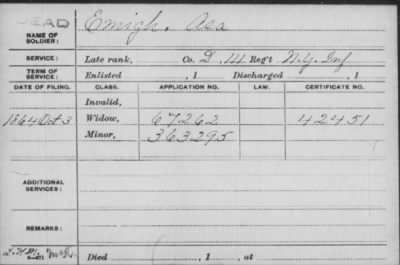 DEAD
NAME OF SOLDIER: Emigh, Asa
SERVICE: Late rank, Co. D, 111 Reg't N.Y. Inf
TERM OF SERVICE: Enlisted , 1 Discharged , 1
DATE OF FILING. CLASS. APPLICATION NO. LAW. CERTIFICATE NO.
Invalid,
1864 Oct 3 Widow, 67262 42451
Minor, 363295
ADDITIONAL SERVICES:
REMARKS:
Died , 1 , at